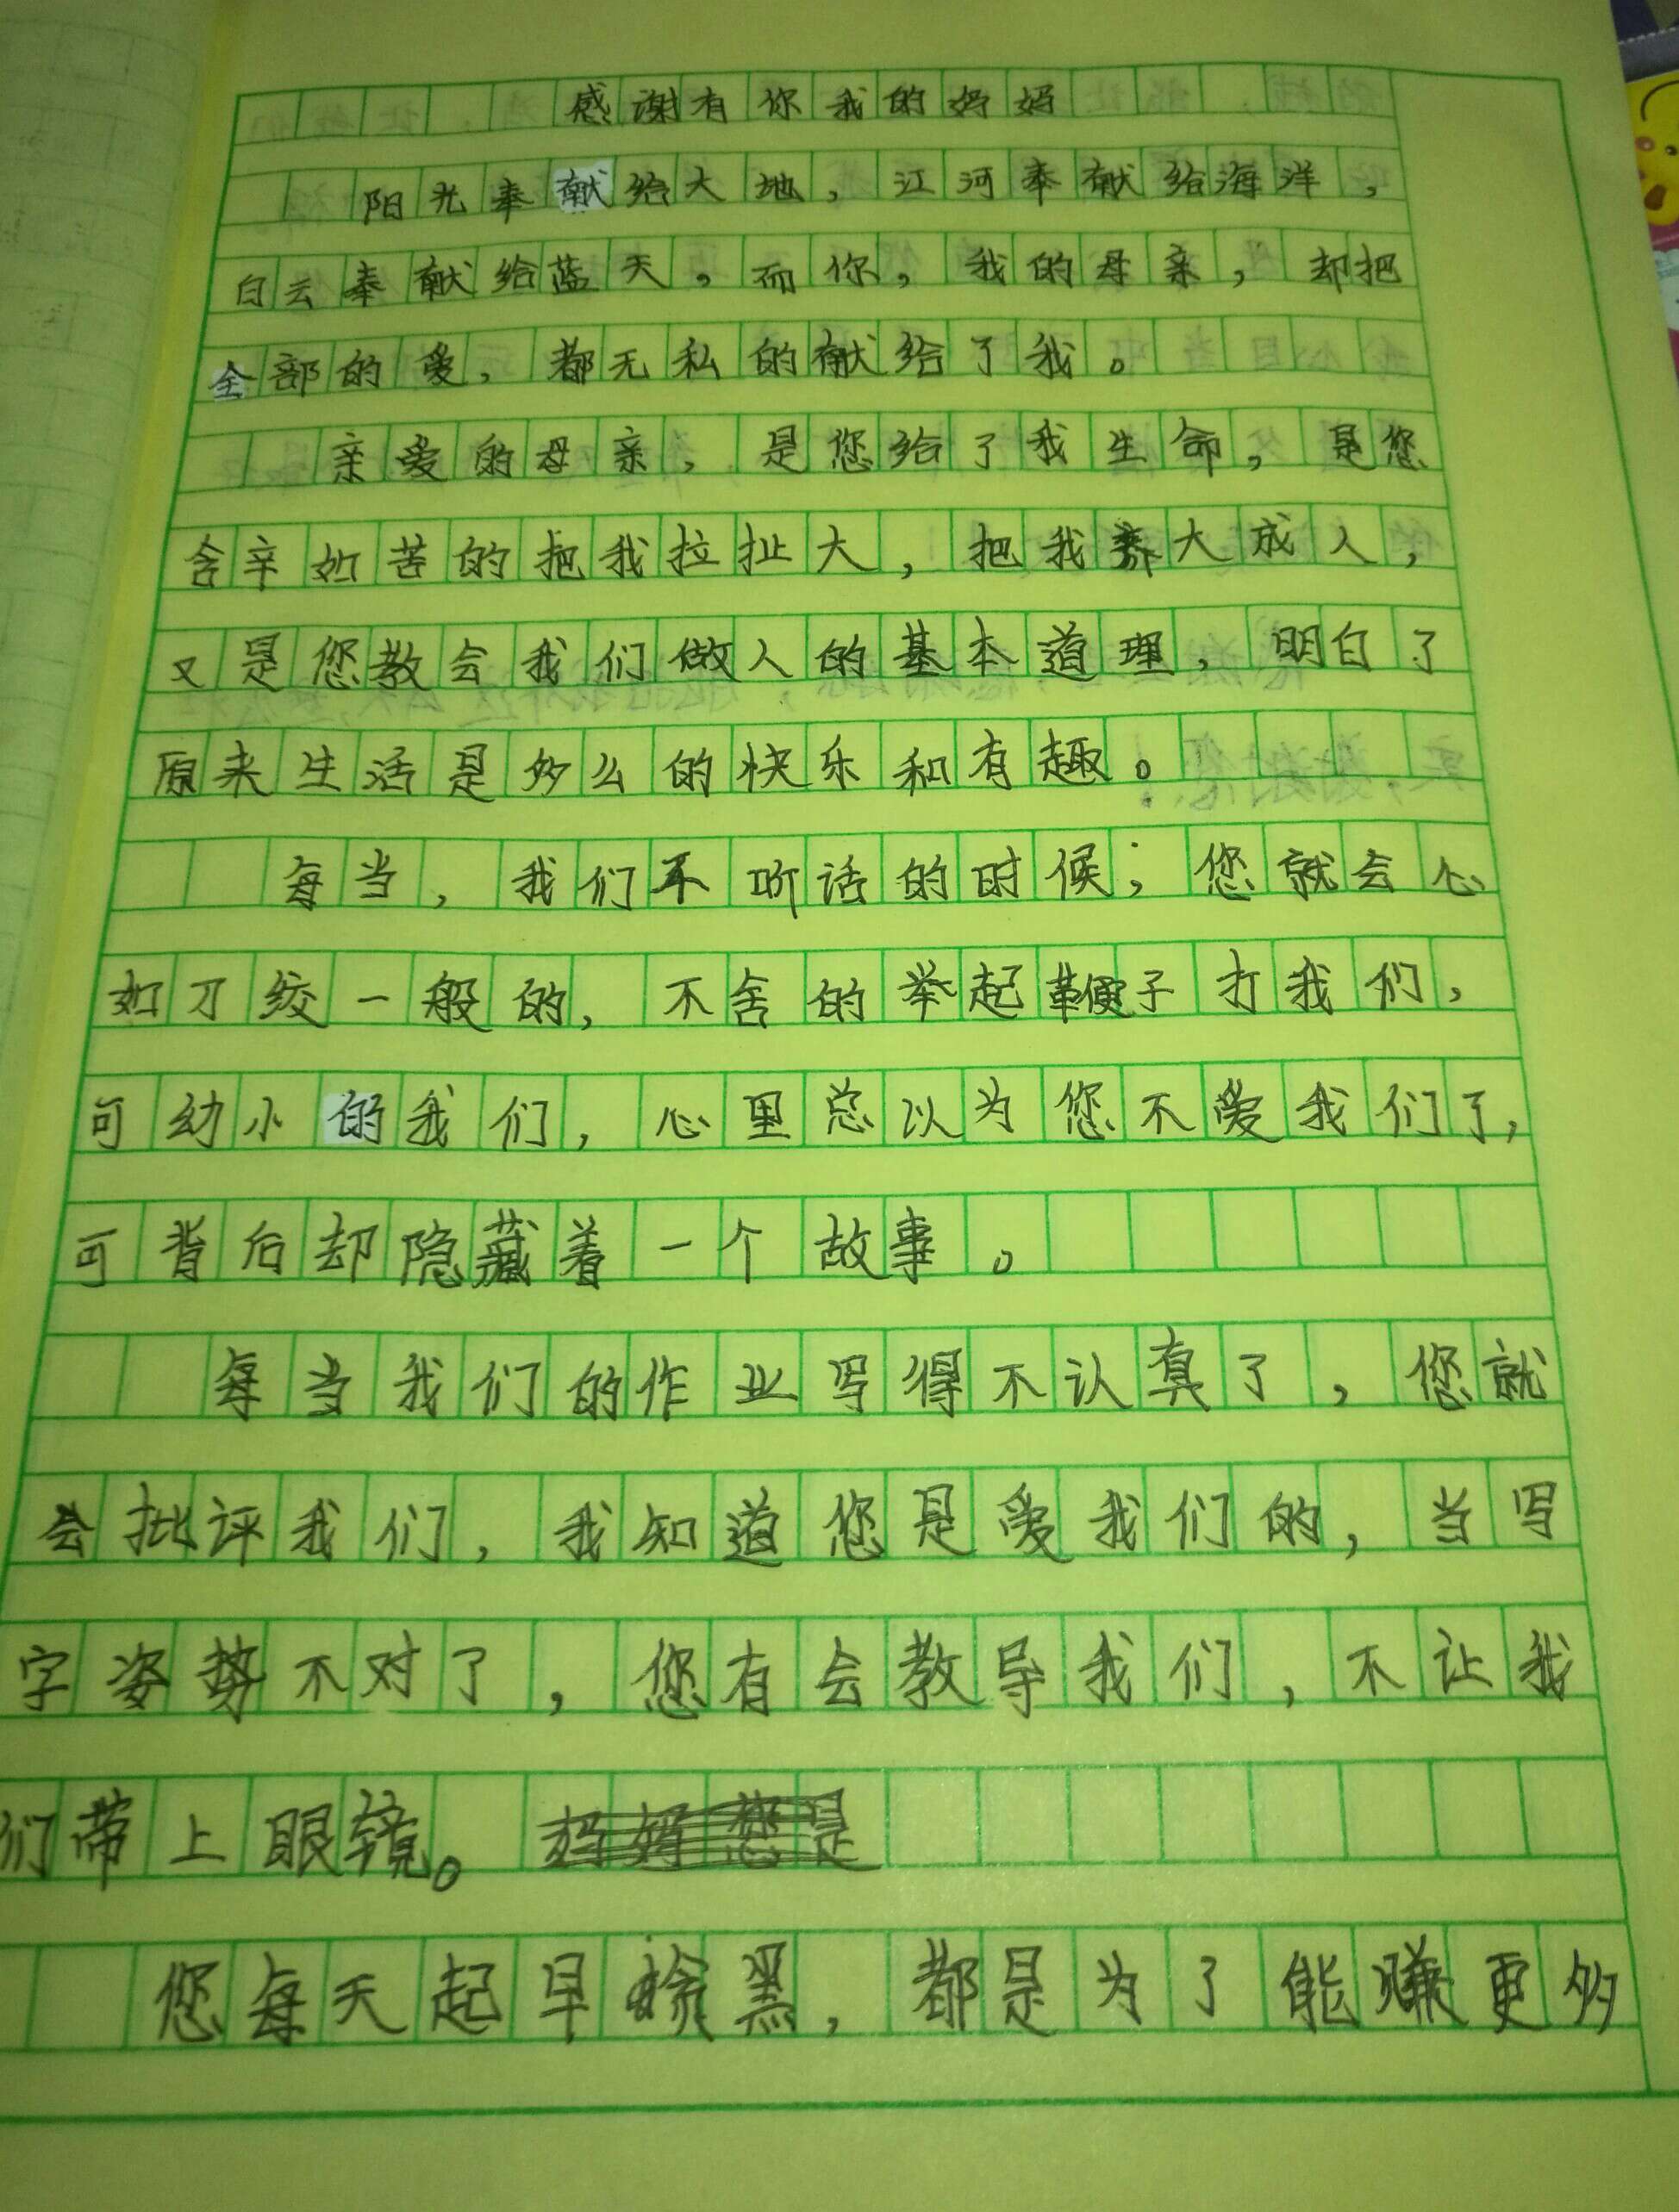 感谢有你我的妈妈
阳光奉献给大地，江河奉献给海洋，
白云奉献给蓝天，而你，我的母亲，却把
全部的爱，都无私的献给了我。
亲爱的母亲，是您给了我生命，是您
含辛如苦的把我拉扯大，把我养大成人，
又是您教会我们做人的基本道理，明白了
原来生活是多么的快乐和有趣。
每当，我们不听话的时候；您就会心
如刀绞一般的，不舍的举起鞭子打我们，
可幼小的我们，心里总以为您不爱我们了，
可背后却隐藏着一个故事。
每当我们的作业写得不认真了，您就
会批评我们，我知道您是爱我们的，当写
字姿势不对了，您有会教导我们，不让我
们带上眼镜。妈妈您是
您每天起早 黑，都是为了能赚更多